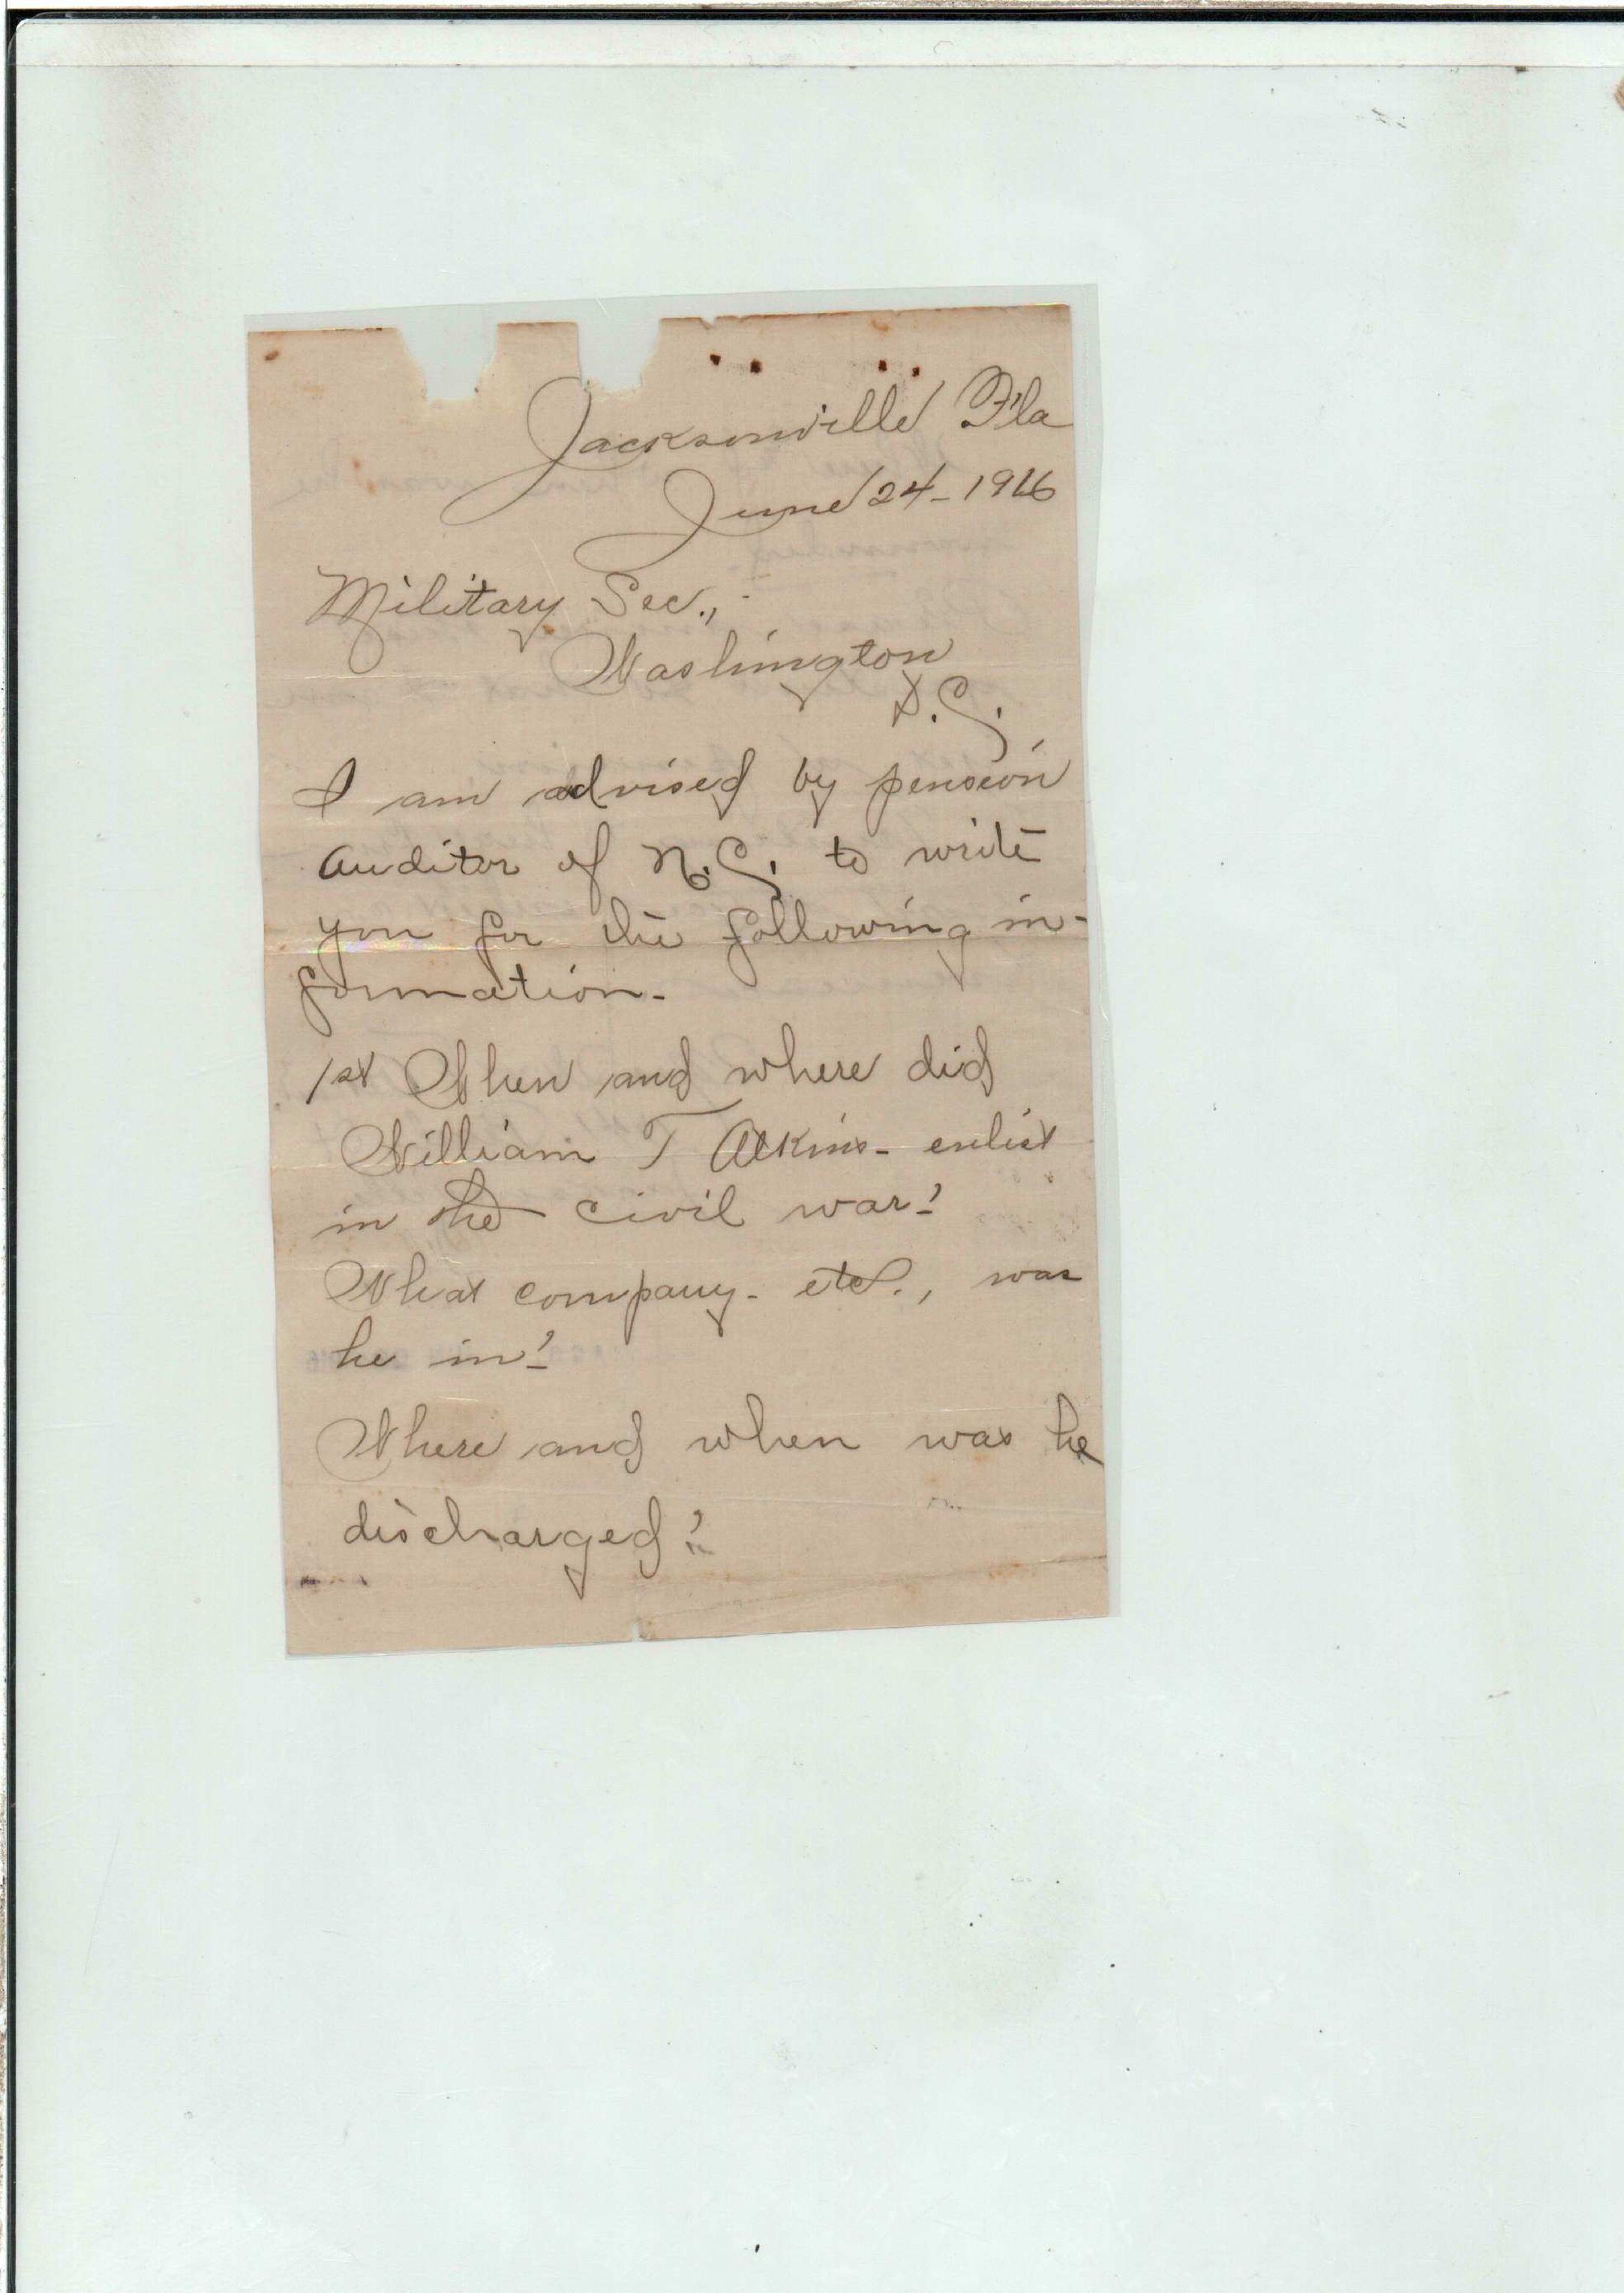 Jacksonville Fla
June 24 - 1916
Military Sec.,
Washington
D.C.
I am advised by pension
auditor of N.C. to write
you for the following in-
formation.
1st When and where did
William T Atkins - enlist
in the civil war?
What company - etc., was
he in?
Where and when was he
discharged?